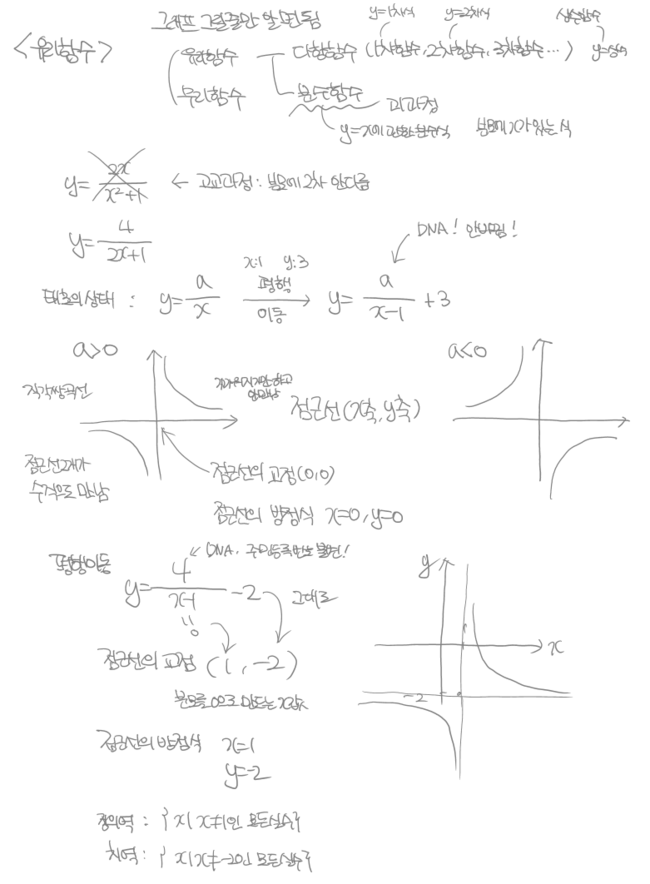 그래프 그릴줄만 알면됨
y=1차식 y=2차식 상수함수
<유리함수>
유리함수 — 다항함수 (1차함수, 2차함수, 3차함수 ...) y=상수
무리함수 분수함수
y=x에 관한 분수식 분모에 x가 있는 식
y=2x/(x²+1) ← 고교과정 : 분모에 2차 안다룸
y=4/(2x+1)
DNA! 안바뀜!
x:1 y:3
태초의 상태 : y=a/x 평행이동 → y=a/(x-1) +3
a>0 a<0
직각쌍곡선
점근선(x축, y축)
점근선 2개가
수직으로 만남
점근선의 교점 (0,0)
점근선의 방정식 x=0, y=0
평행이동
y=4/(x-1) -2 그대로
y
x
-2
점근선의 교점 (1, -2)
분모를 0으로 만드는 x값
점근선의 방정식 x=1
y=-2
정의역 : {x|x≠1인 모든실수}
치역 : {x|x≠-2인 모든실수}